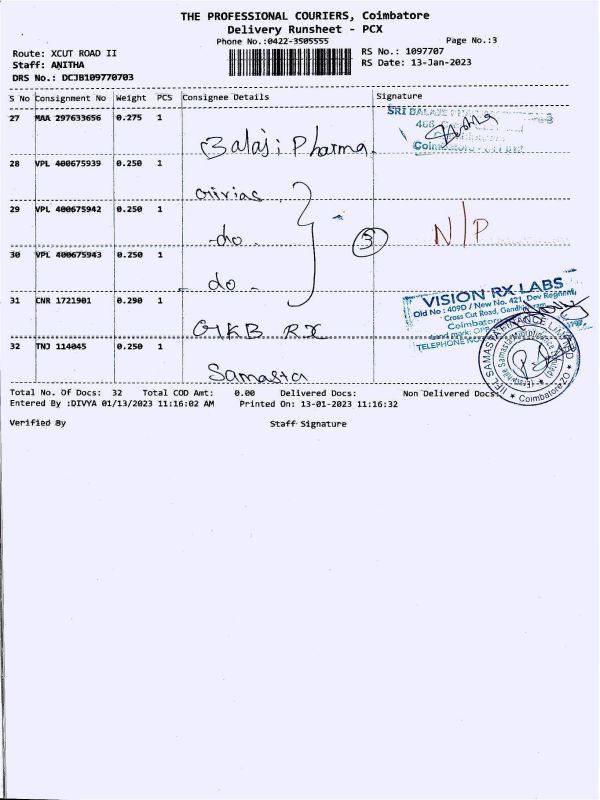 THE PROFESSIONAL COURIERS, Coimbatore
Delivery Runsheet - PCX
Phone No.:0422-3505555
Page No.:3
Route: XCUT ROAD II
RS No.: 1097707
Staff: ANITHA
RS Date: 13-Jan-2023
DRS No.: DCJB109770703
S No Consignment No Weight PCS Consignee Details Signature
27 MAA 297633656 0.275 1
SRI BALAJI
Balaji Pharma.
28 VPL 400675939 0.250 1
29 VPL 400675942 0.250 1
-do -
3
N/P
30 VPL 400675943 0.250 1
- do -
31 CNR 1721901 0.290 1
VISION RX LABS
Old No : 409D / New No. 421, Dev Regency,
Cross Cut Road, Gandhipuram
Coimbatore
GKB RX
32 TNJ 114045 0.250 1
IIFL SAMASTA FINANCE LIMITED
Coimbatore
Samasta
Total No. Of Docs: 32 Total COD Amt: 0.00 Delivered Docs: Non Delivered Docs:
Entered By :DIVYA 01/13/2023 11:16:02 AM Printed On: 13-01-2023 11:16:32
Verified By Staff Signature